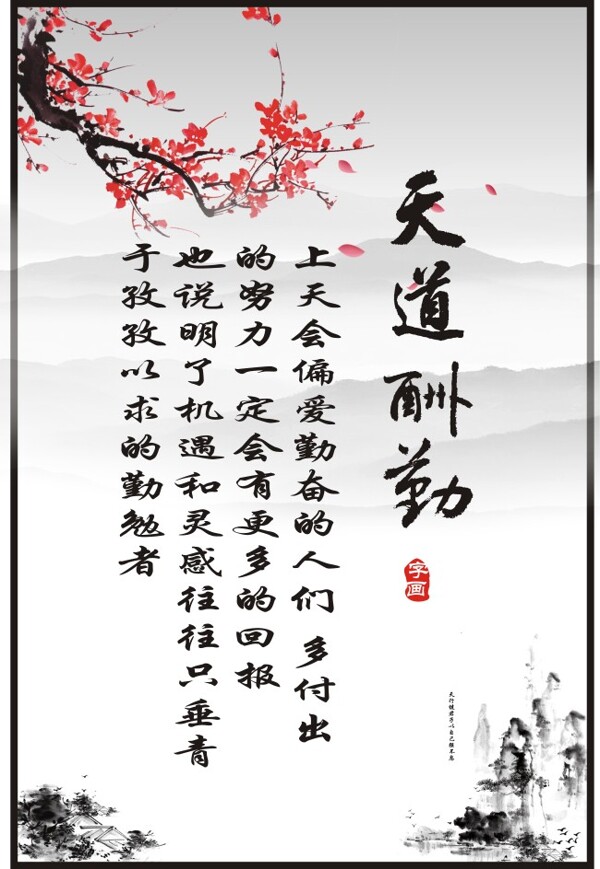 天道酬勤
字画
上天会偏爱勤奋的人们 多付出
的努力一定会有更多的回报
也说明了机遇和灵感往往只垂青
于孜孜以求的勤勉者
天行健君子以自己强不息